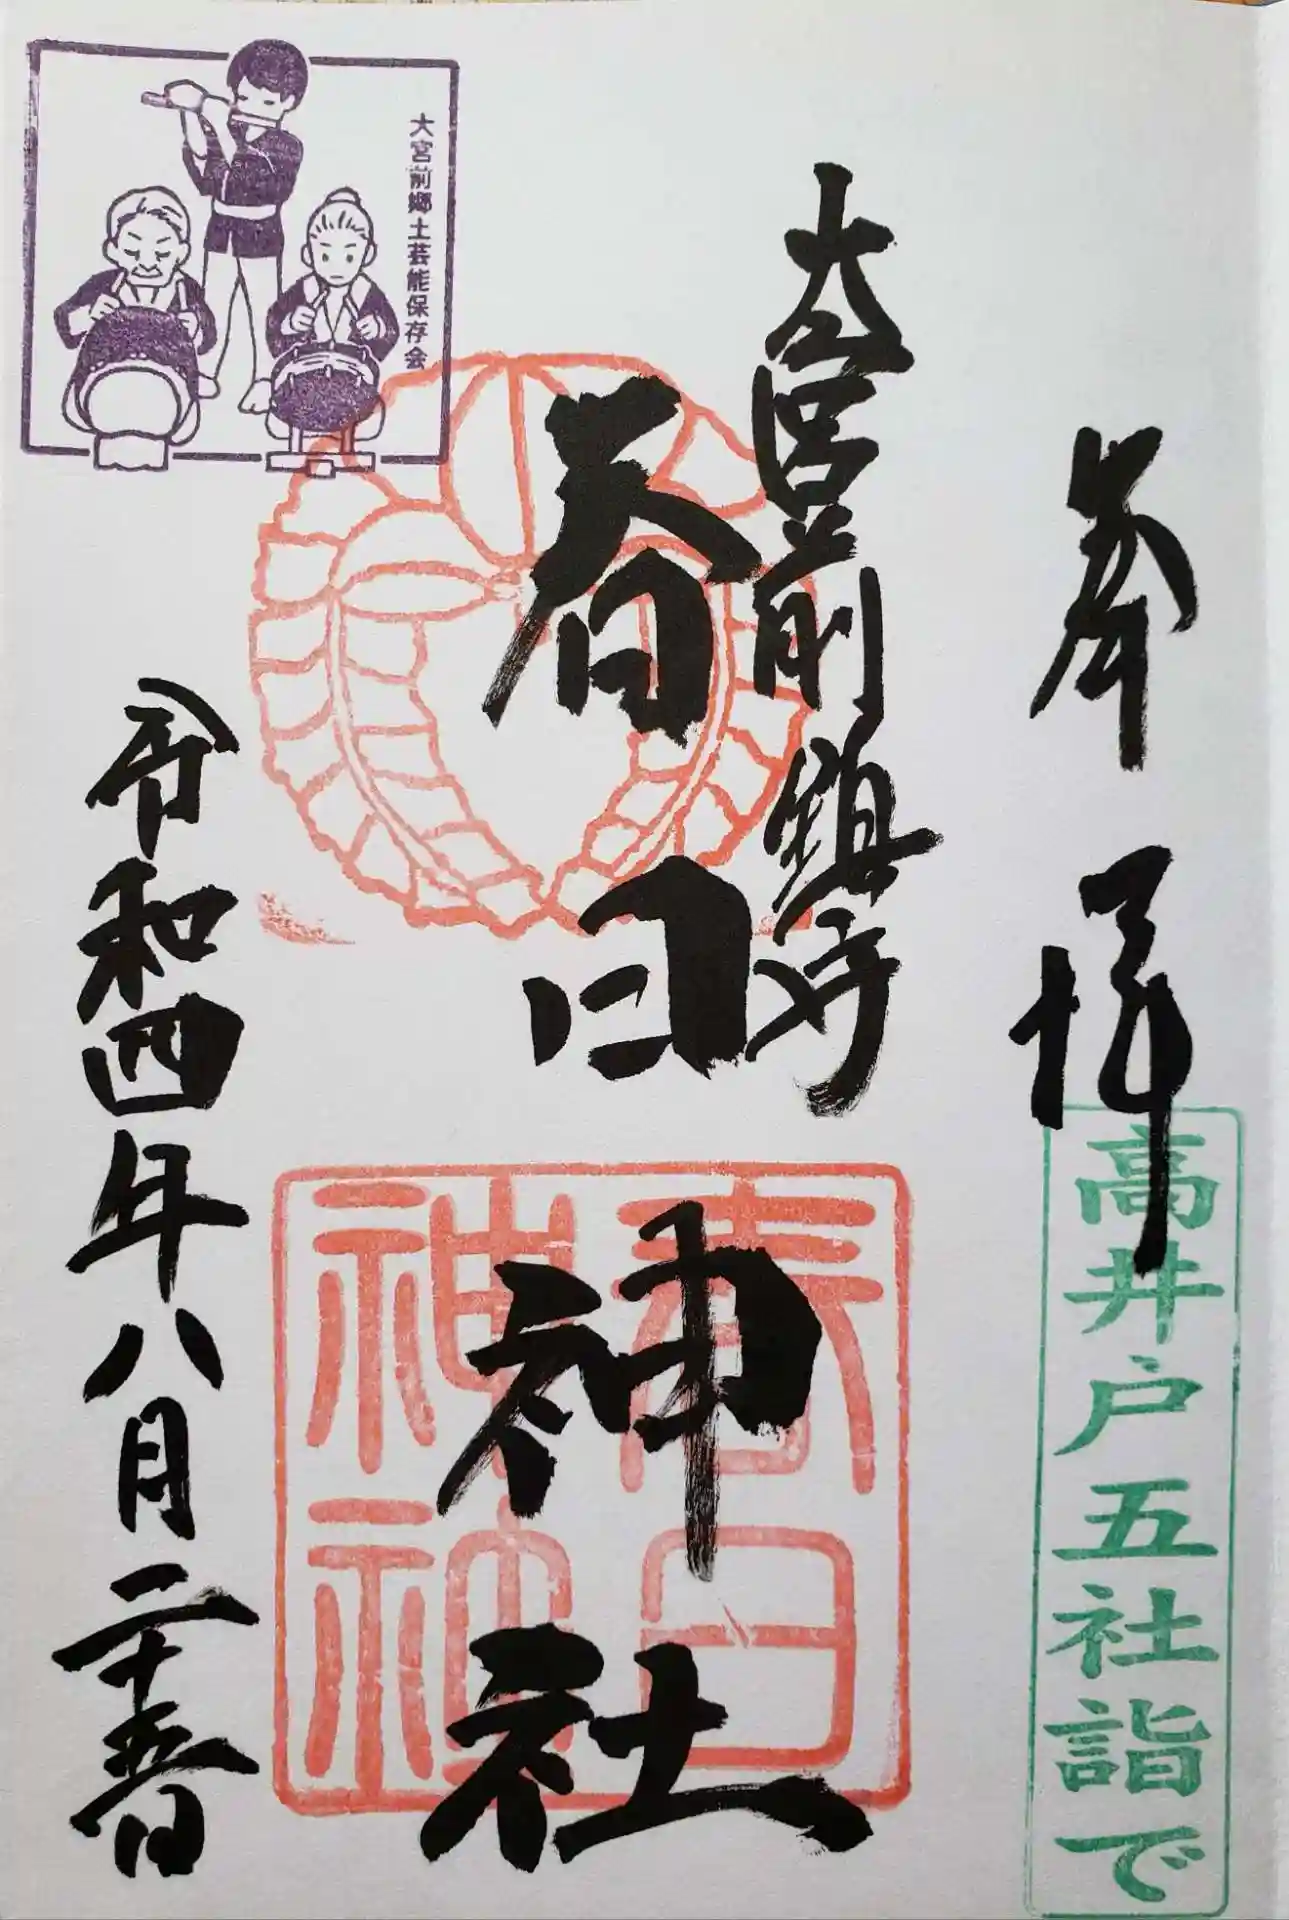 奉拝
高井戸五社詣で
大宮前鎮守
春日神社
春日
神社
大宮前郷土芸能保存会
令和四年八月二十五日